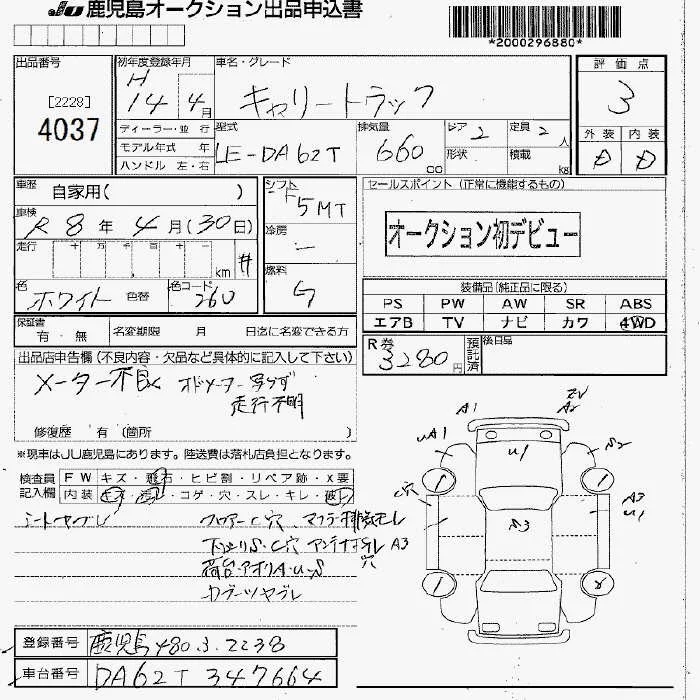 JU 鹿児島オークション出品申込書
*2000296880*
出品番号
[2228]
4037
初年度登録年月
H
14 4月
車名・グレード
キャリートラック
評価点
3
外装 内装
D D
ディーラー・並 行
モデル年式 年
ハンドル 左・右
型式
LE-DA62T
排気量
660 cc
ドア 2
形状
定員 2 人
積載 kg
車歴 自家用( )
車検
R 8 年 4 月(30日)
走行 十 万 千 百 十 一
km #
色
ホワイト 色替
色コード
26U
シフト
5MT
冷房
燃料
G
セールスポイント (正常に機能するもの)
オークション初デビュー
装備品(純正品に限る)
PS PW AW SR ABS
エアB TV ナビ カワ 4WD
R券
3280円
預託済
後日品
保証書
有・無
名変期限 月 日迄に名変できる方
出品店申告欄(不良内容・欠品など具体的に記入して下さい)
メーター不良 オドメーター写らず
走行不明
修復歴 有 (箇所 )
※現車はJU鹿児島にあります。陸送費は落札店負担となります。
検査員
記入欄
FW キズ・飛石・ヒビ割・リペア跡・X要
内装 キズ・汚れ・コゲ・穴・スレ・キレ・破れ
シートヤブレ
フロアーC穴、マフラー排気モレ
下廻りS.C穴 アンテナ折レ A3
荷台・アオリA.U.S 穴
カブーツヤブレ
A1 A2
UA1 U1 S2
C穴 S3 A3
U1
登録番号 鹿児島480.3.2238
車台番号 DA62T 347664